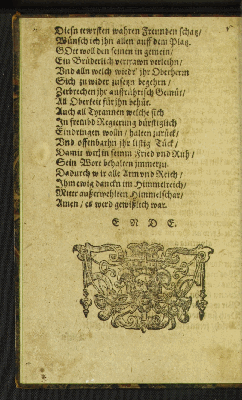 Diesn tewrsten wahren Freunden schatz/
Wünsch ich ihn allen auff dem Platz.
GOtt woll den seinen in gemein/
Ein Brüderlich vertrawn verleihn/
Vnd alln welch wiedr' ihr Oberherrn
Sich zu wider setzen begehrn/
Zerbrechen ihr auffrührisch Gemüt/
All Oberkeit für ihn behüt.
Auch all Tyrannen welche sich
In frembd Regierung dürstiglich
Eindringen wolln/ halten zurück/
Vnd offenbarhn ihr listig Tück/
Damit wir in seinem Fried vnd Ruh/
Sein Wort behalten immerzu.
Dadurch wir alle Arm vnd Reich/
Ihm ewig dancken im Himmelreich/
Mit außerwehlten Himmelschar/
Amen/ es werd gewißlich war.
E N D E.